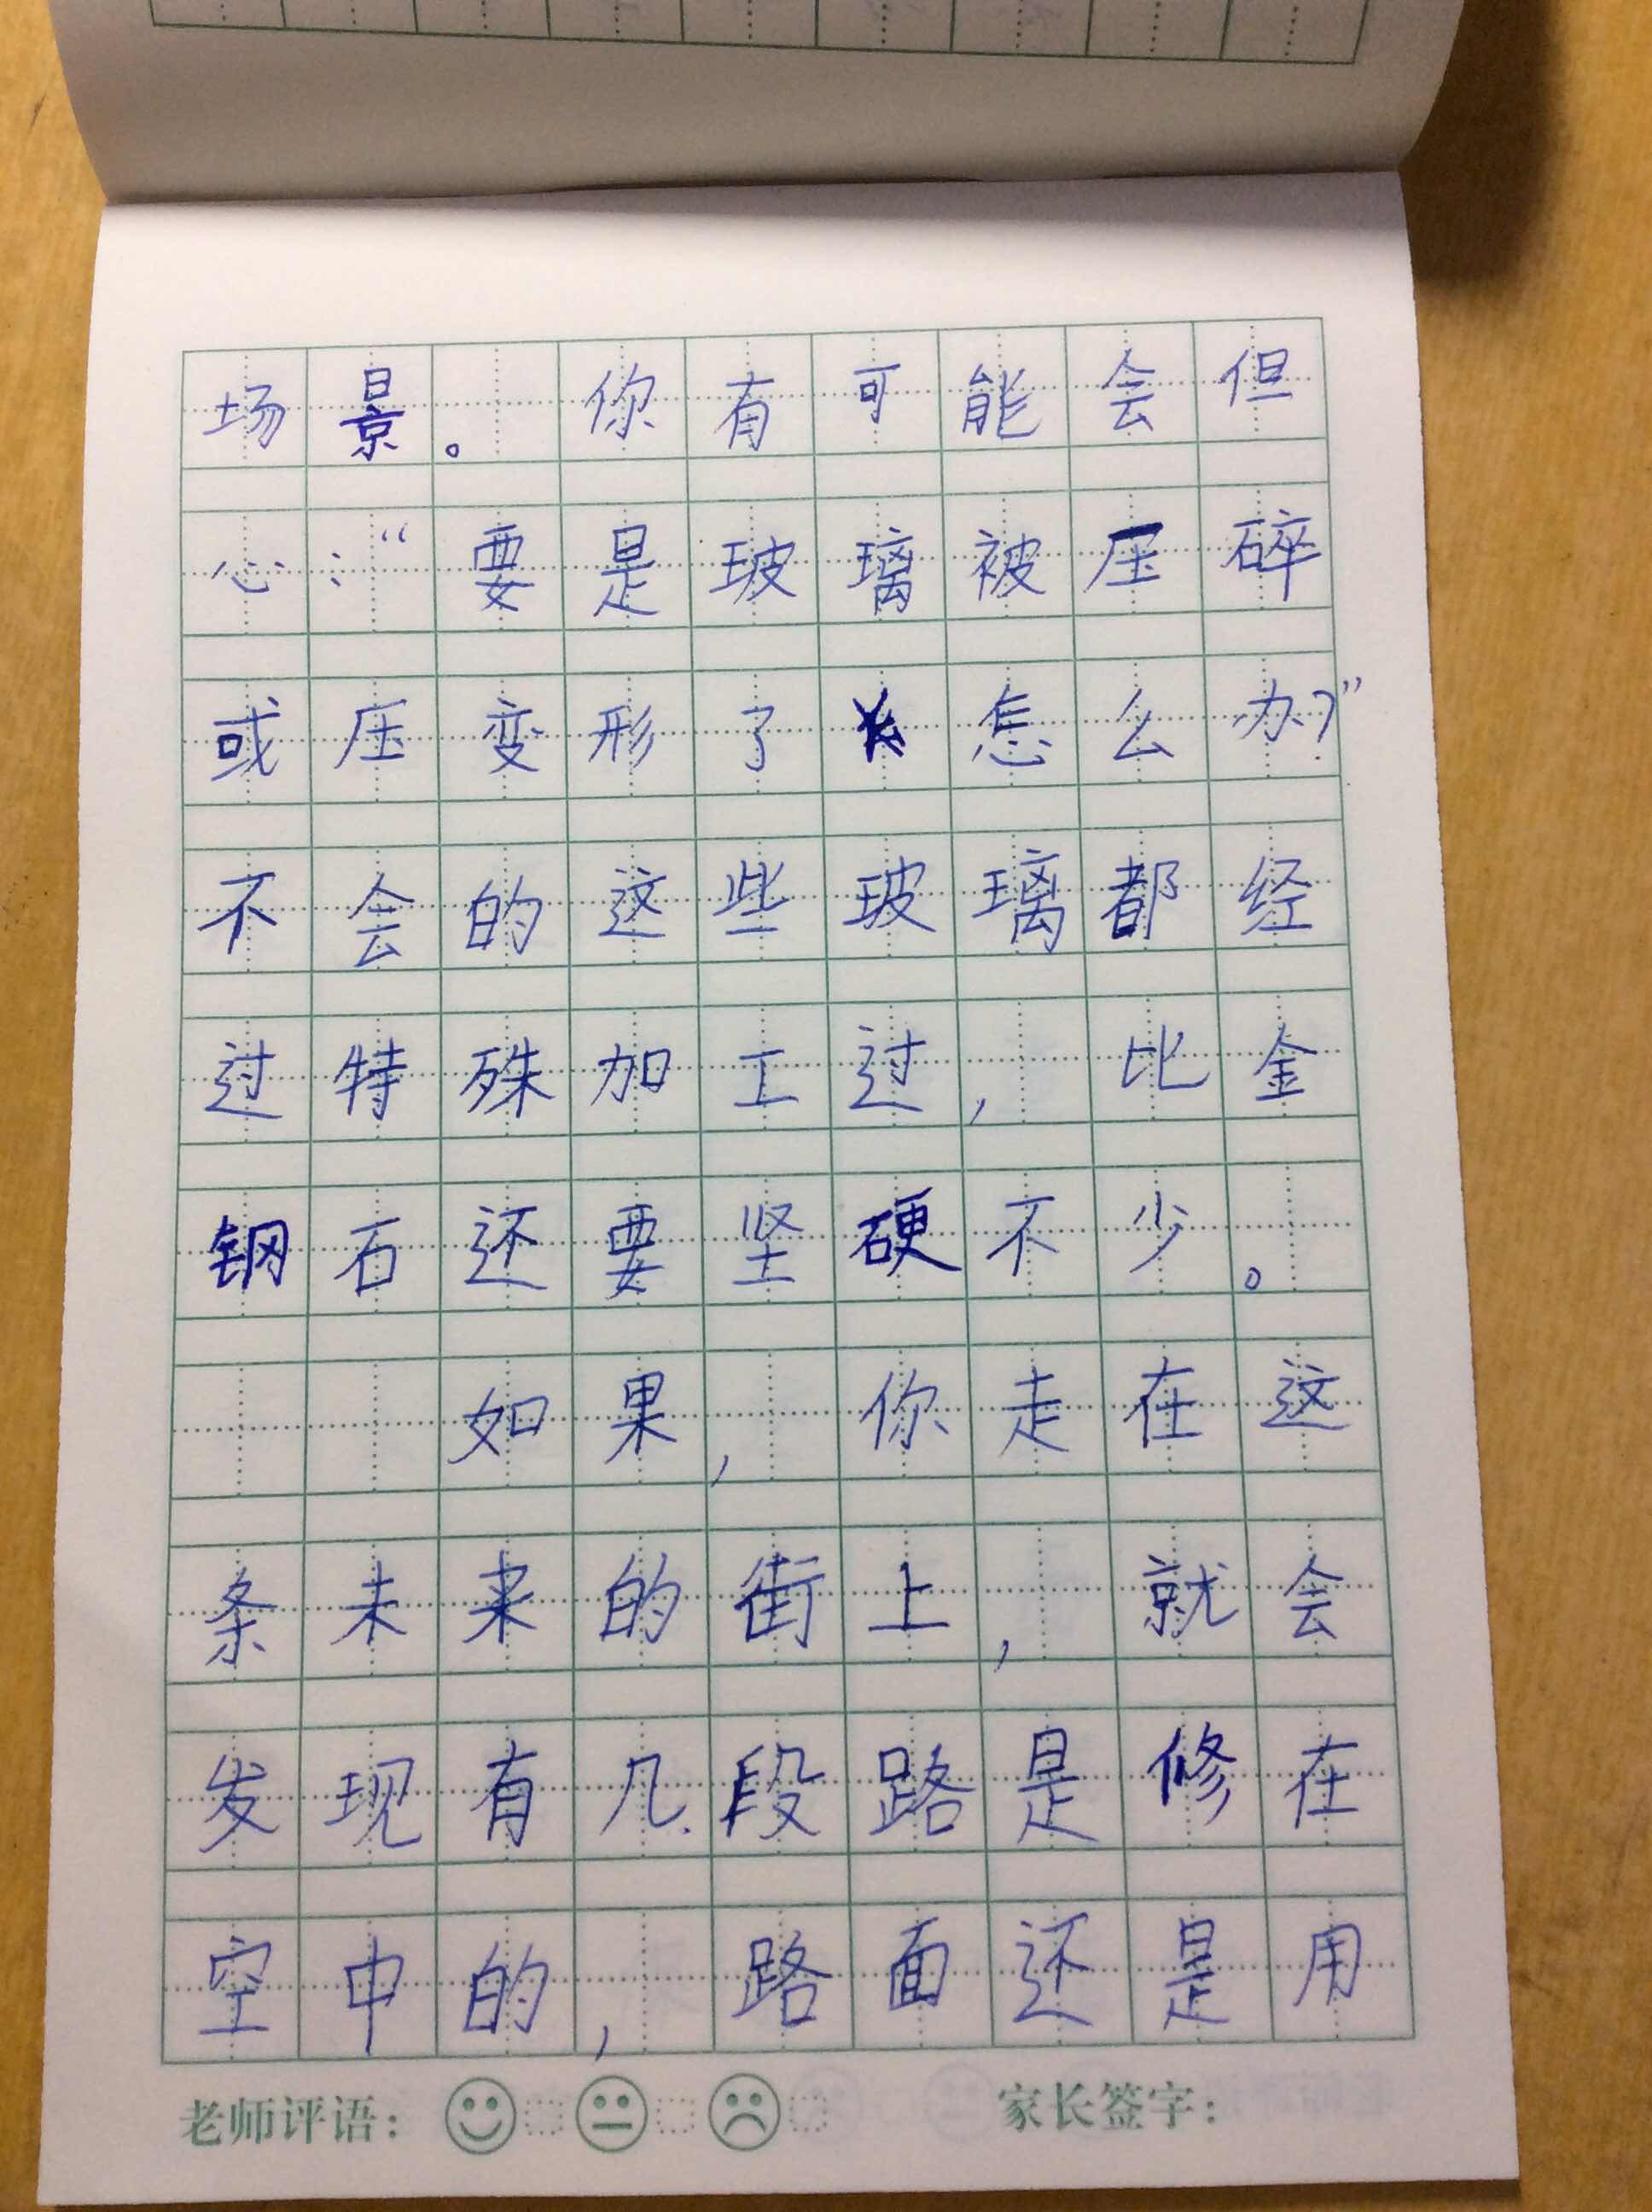 场景。你有可能会但
心：“要是玻璃被压碎
或压变形了怎么办？”
不会的这些玻璃都经
过特殊加工过，比金
钢石还要坚硬不少。
如果，你走在这
条未来的街上，就会
发现有几段路是修在
空中的，路面还是用
老师评语： 家长签字：